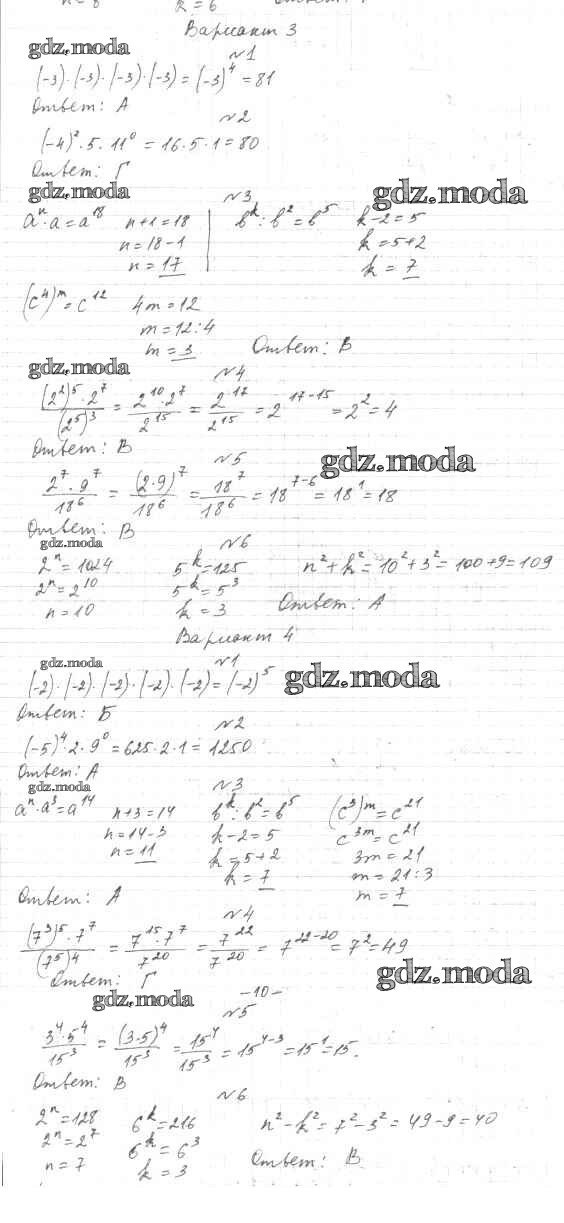 k = 6
Вариант 3
gdz.moda
№1
(-3)·(-3)·(-3)·(-3) = (-3)⁴ = 81
Ответ: А
№2
(-4)²·5·11⁰ = 16·5·1 = 80
Ответ: Г
gdz.moda
№3
gdz.moda
aⁿ·a = a¹⁸ n+1=18 bᵏ:b²=b⁵ k-2=5
n=18-1 k=5+2
n=17 k=7
(c⁴)ᵐ=c¹² 4m=12
m=12:4
m=3 Ответ: В
gdz.moda
№4
(2²)⁵·2⁷/(2⁵)³ = 2¹⁰·2⁷/2¹⁵ = 2¹⁷/2¹⁵ = 2¹⁷⁻¹⁵ = 2² = 4
Ответ: В
№5
gdz.moda
2⁷·9⁷/18⁶ = (2·9)⁷/18⁶ = 18⁷/18⁶ = 18⁷⁻⁶ = 18¹ = 18
Ответ: В
gdz.moda
№6
2ⁿ=1024 5ᵏ=125 n²+k²=10²+3²=100+9=109
2ⁿ=2¹⁰ 5ᵏ=5³
n=10 k=3 Ответ: А
Вариант 4
gdz.moda
№1
(-2)·(-2)·(-2)·(-2)·(-2) = (-2)⁵
gdz.moda
Ответ: Б
№2
(-5)⁴·2·9⁰ = 625·2·1 = 1250
Ответ: А
gdz.moda
№3
aⁿ·a³=a¹⁴ n+3=14 bᵏ:b²=b⁵ (c³)ᵐ=c²¹
n=14-3 k-2=5 c³ᵐ=c²¹
n=11 k=5+2 3m=21
k=7 m=21:3
m=7
Ответ: А
№4
(7³)⁵·7⁷/(7⁵)⁴ = 7¹⁵·7⁷/7²⁰ = 7²²/7²⁰ = 7²²⁻²⁰ = 7² = 49
Ответ: Г
gdz.moda
gdz.moda
-10-
№5
3⁴·5⁴/15³ = (3·5)⁴/15³ = 15⁴/15³ = 15⁴⁻³ = 15¹ = 15.
Ответ: В
№6
2ⁿ=128 6ᵏ=216 n²-k²=7²-3²=49-9=40
2ⁿ=2⁷ 6ᵏ=6³
n=7 k=3 Ответ: В